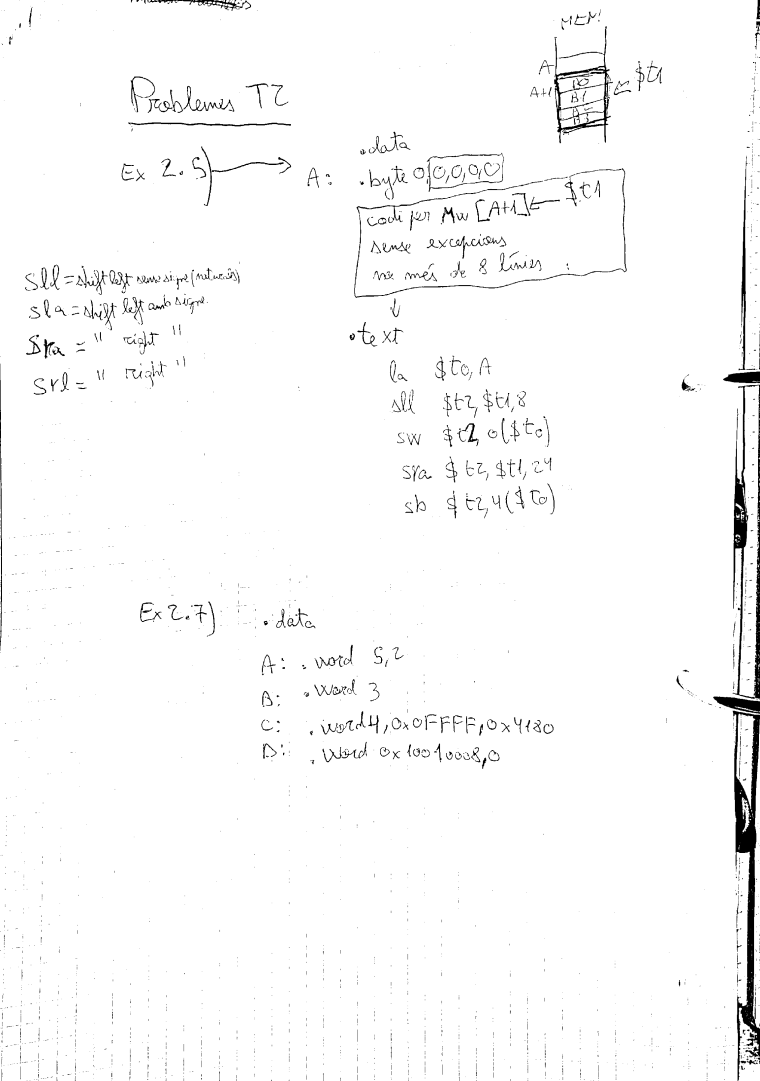 MEM!
A
A+1
B0
B1
$t1
Problemes T2
Ex 2.5)
.data
A: .byte 0,0,0,0,0
codi per Mw [A+1] ← $t1
sense excepcions
no més de 8 línies :
sll = shift left sense signe (naturals)
sla = shift left amb signe.
sra = " right "
srl = " right "
.text
la $t0, A
sll $t2, $t1, 8
sw $t2, 0($t0)
sra $t2, $t1, 24
sb $t2, 4($t0)
Ex 2.7)
.data
A: .word 5,2
B: .word 3
C: .word 4, 0x0FFFF, 0x4180
D: .word 0x10010008,0